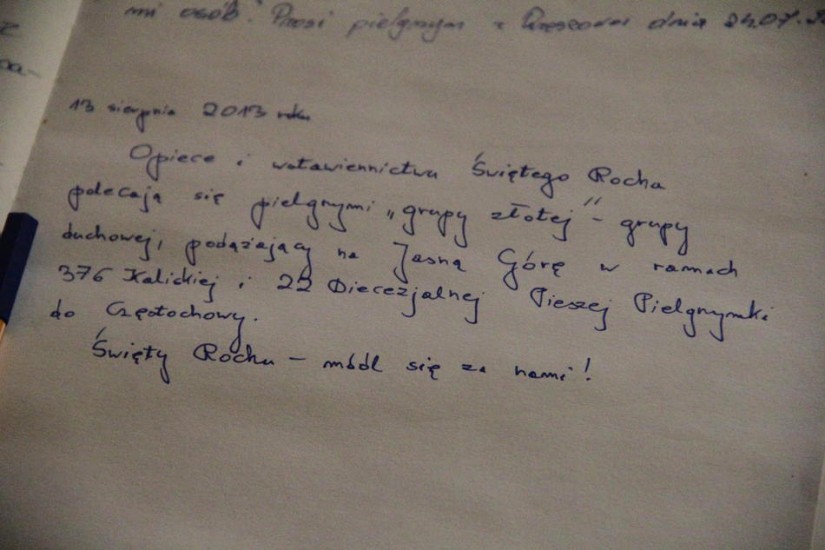 mi osób. Prosi pielgrzym z Rzeszowa dnia 24.07.
13 sierpnia 2013 roku
Opiece i wstawiennictwu Świętego Rocha
polecają się pielgrzymi „grupy złotej" - grupy
duchowej, podążający na Jasną Górę w ramach
376 Kaliskiej i 22 Diecezjalnej Pieszej Pielgrzymki
do Częstochowy.
Święty Rochu - módl się za nami!